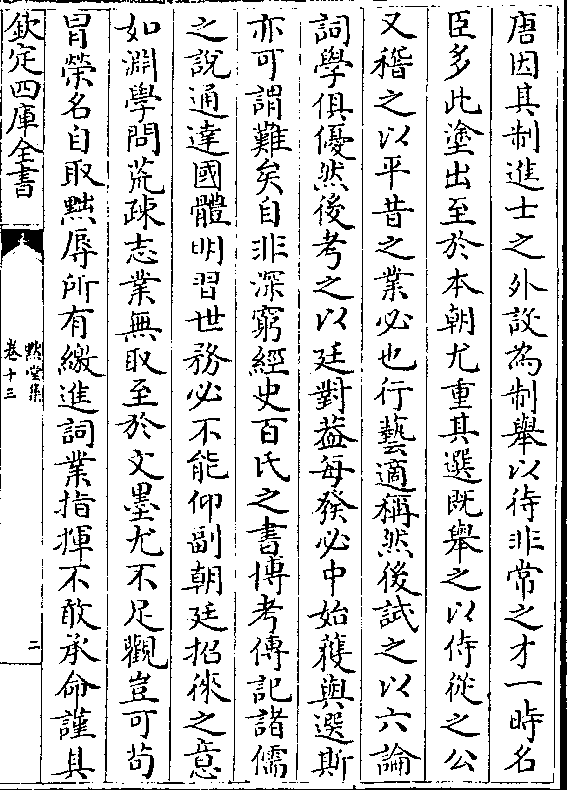 唐因其制進士之外設為制舉以待非常之才一時名
臣多此塗出至於本朝尤重其選既舉之以侍從之公
又稽之以平昔之業必也行藝適稱然後試之以六論
詞學俱優然後考之以廷對葢每發必中始獲與選斯
亦可謂難矣自非深窮經史百氏之書博考傳記諸儒
之說通達國體明習世務必不能仰副朝廷招徠之意
如淵學問荒疎志業無取至於文墨尤不足觀豈可苟
冒榮名自取黜辱所有繳進詞業指揮不敢承命謹具
欽定四庫全書
默堂集
卷十三
二